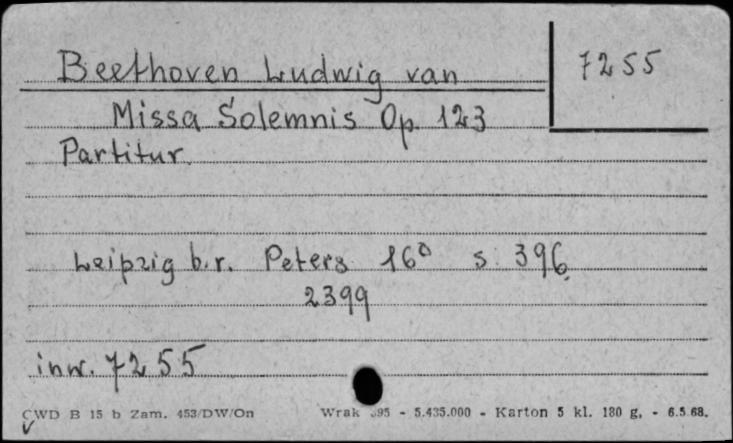 Beethoven Ludwig van
7255
Missa Solemnis Op. 123
Partitur
Leipzig b.r. Peters 16° s. 396
2399
inw. 7255
CWD B 15 b Zam. 453/DW/On Wrak 95 - 5.435.000 - Karton 5 kl. 180 g. - 6.5.68.